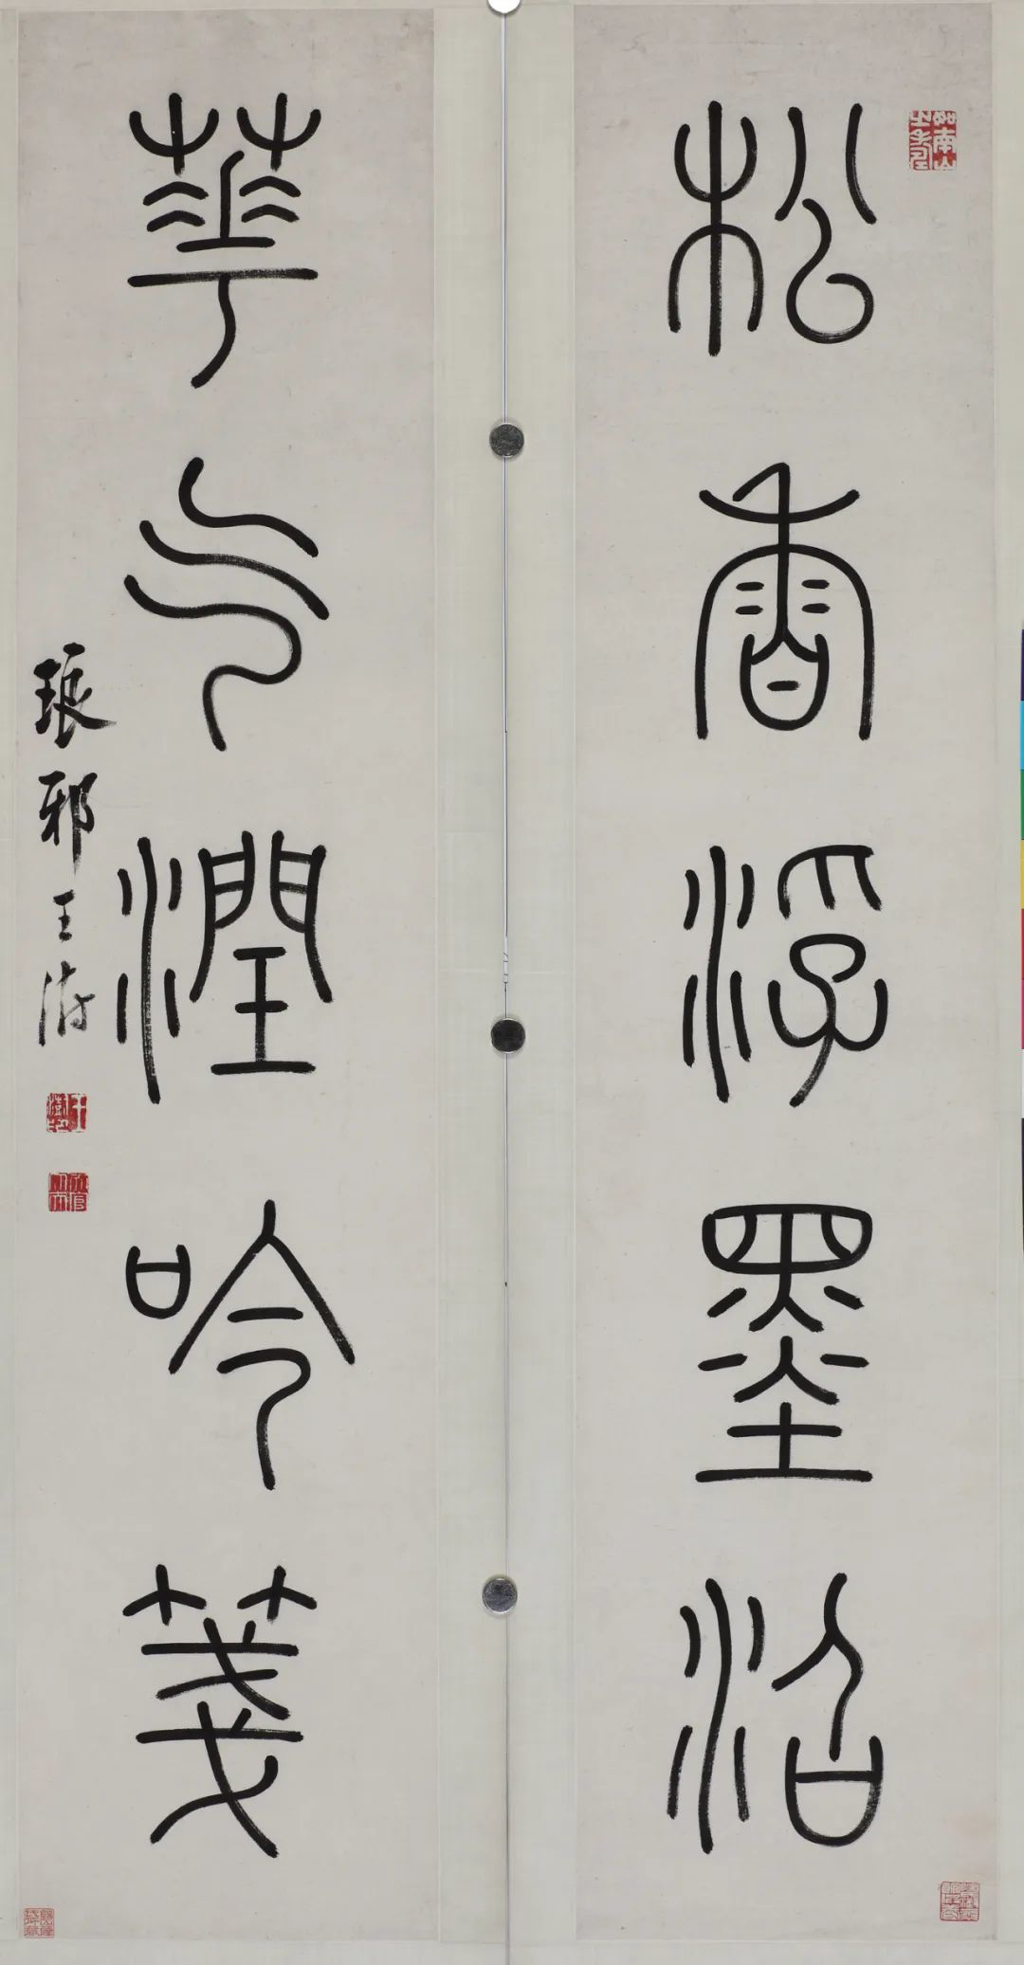 松香浮墨沼
華气潤吟箋
琅邪王澍